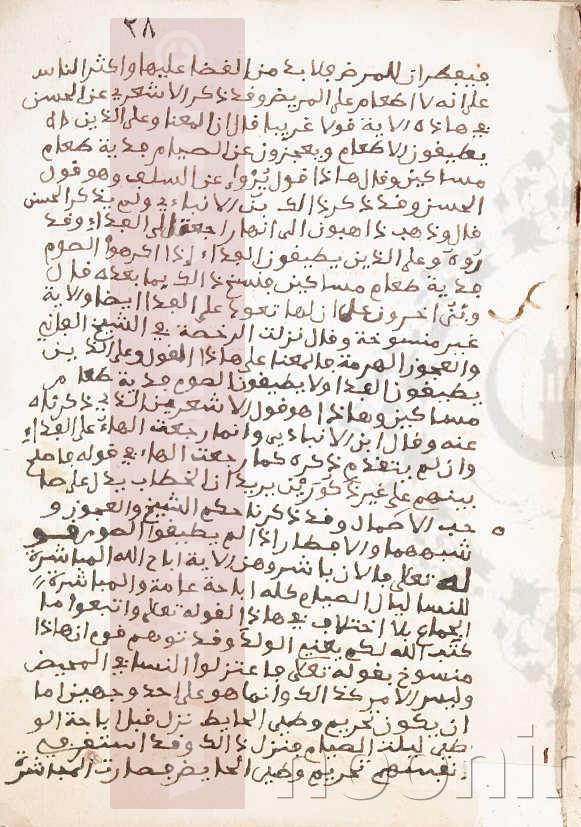 ٣٨
فيفطران للمرض فلا بد من القضا عليها واكثر الناس
على انه لا اطعام على المريض وقد ذكر الاشعري عن الحسن
في هاذه الاية قولا غريبا قال ان المعنا وعلى الذين
يطيقون الاطعام ويعجزون عن الصيام فدية طعام
مساكين وقال هاذا قول يروا عن السلف وهو قول
الحسن وقد ذكر ذالك بن الانباري ولم يذكر الحسن
قال وذهب ذاهبون الى انها راجعة الى الفداء وقد
وعلى الذين يطيقون الفداء اذا اكرهوا الصوم
فدية طعام مساكين فنسخ ذالك بما بعده قال
اخرون على ان الها تعود على الفدا ايضا والاية
غير منسوخة وقال نزلت الرخصة في الشيخ الفاني
والعجوز الهرمة فالمعنا على هاذا القول وعلى الذين
يطيقون الفدا ولا يطيقون الصوم فدية طعام
مساكين وهاذا هو قول الاشعري الذي ذكرناه
عنه وقال ابن الانباري وانما رجعت الهاء على الفداء
وان لم يتقدم ذكره كما رجعت الهاء في قوله فاصلح
بينهم على غير مذكورين يريد ان الخطاب يدل على صا
حب الاضمار وقد ذكرنا حكم الشيخ والعجوز و
شبههما والافطار اذا لم يطيقوا الصوم قو
له تعلى فالان باشروهن الاية اباح الله المباشرة
للنسا ليال الصيام كله اباحة عامة والمباشرة
الجماع بلا اختلاف في هاذا لقوله تعلى وابتغوا ما
كتب الله لكم يعني الولد وقد توهم قوم ان هاذا
منسوخ بقوله تعلى فاعتزلوا النسا في المحيض
وليس الامر كذالك وانما هو على احد وجهين اما
ان يكون تحريم وطي الحايض نزل قبل اباحة الو
طي ليلة الصيام فنزل ذالك وقد استقر في
نفسهم تحريم وطي الحايض فصارت المباشرة
noorin